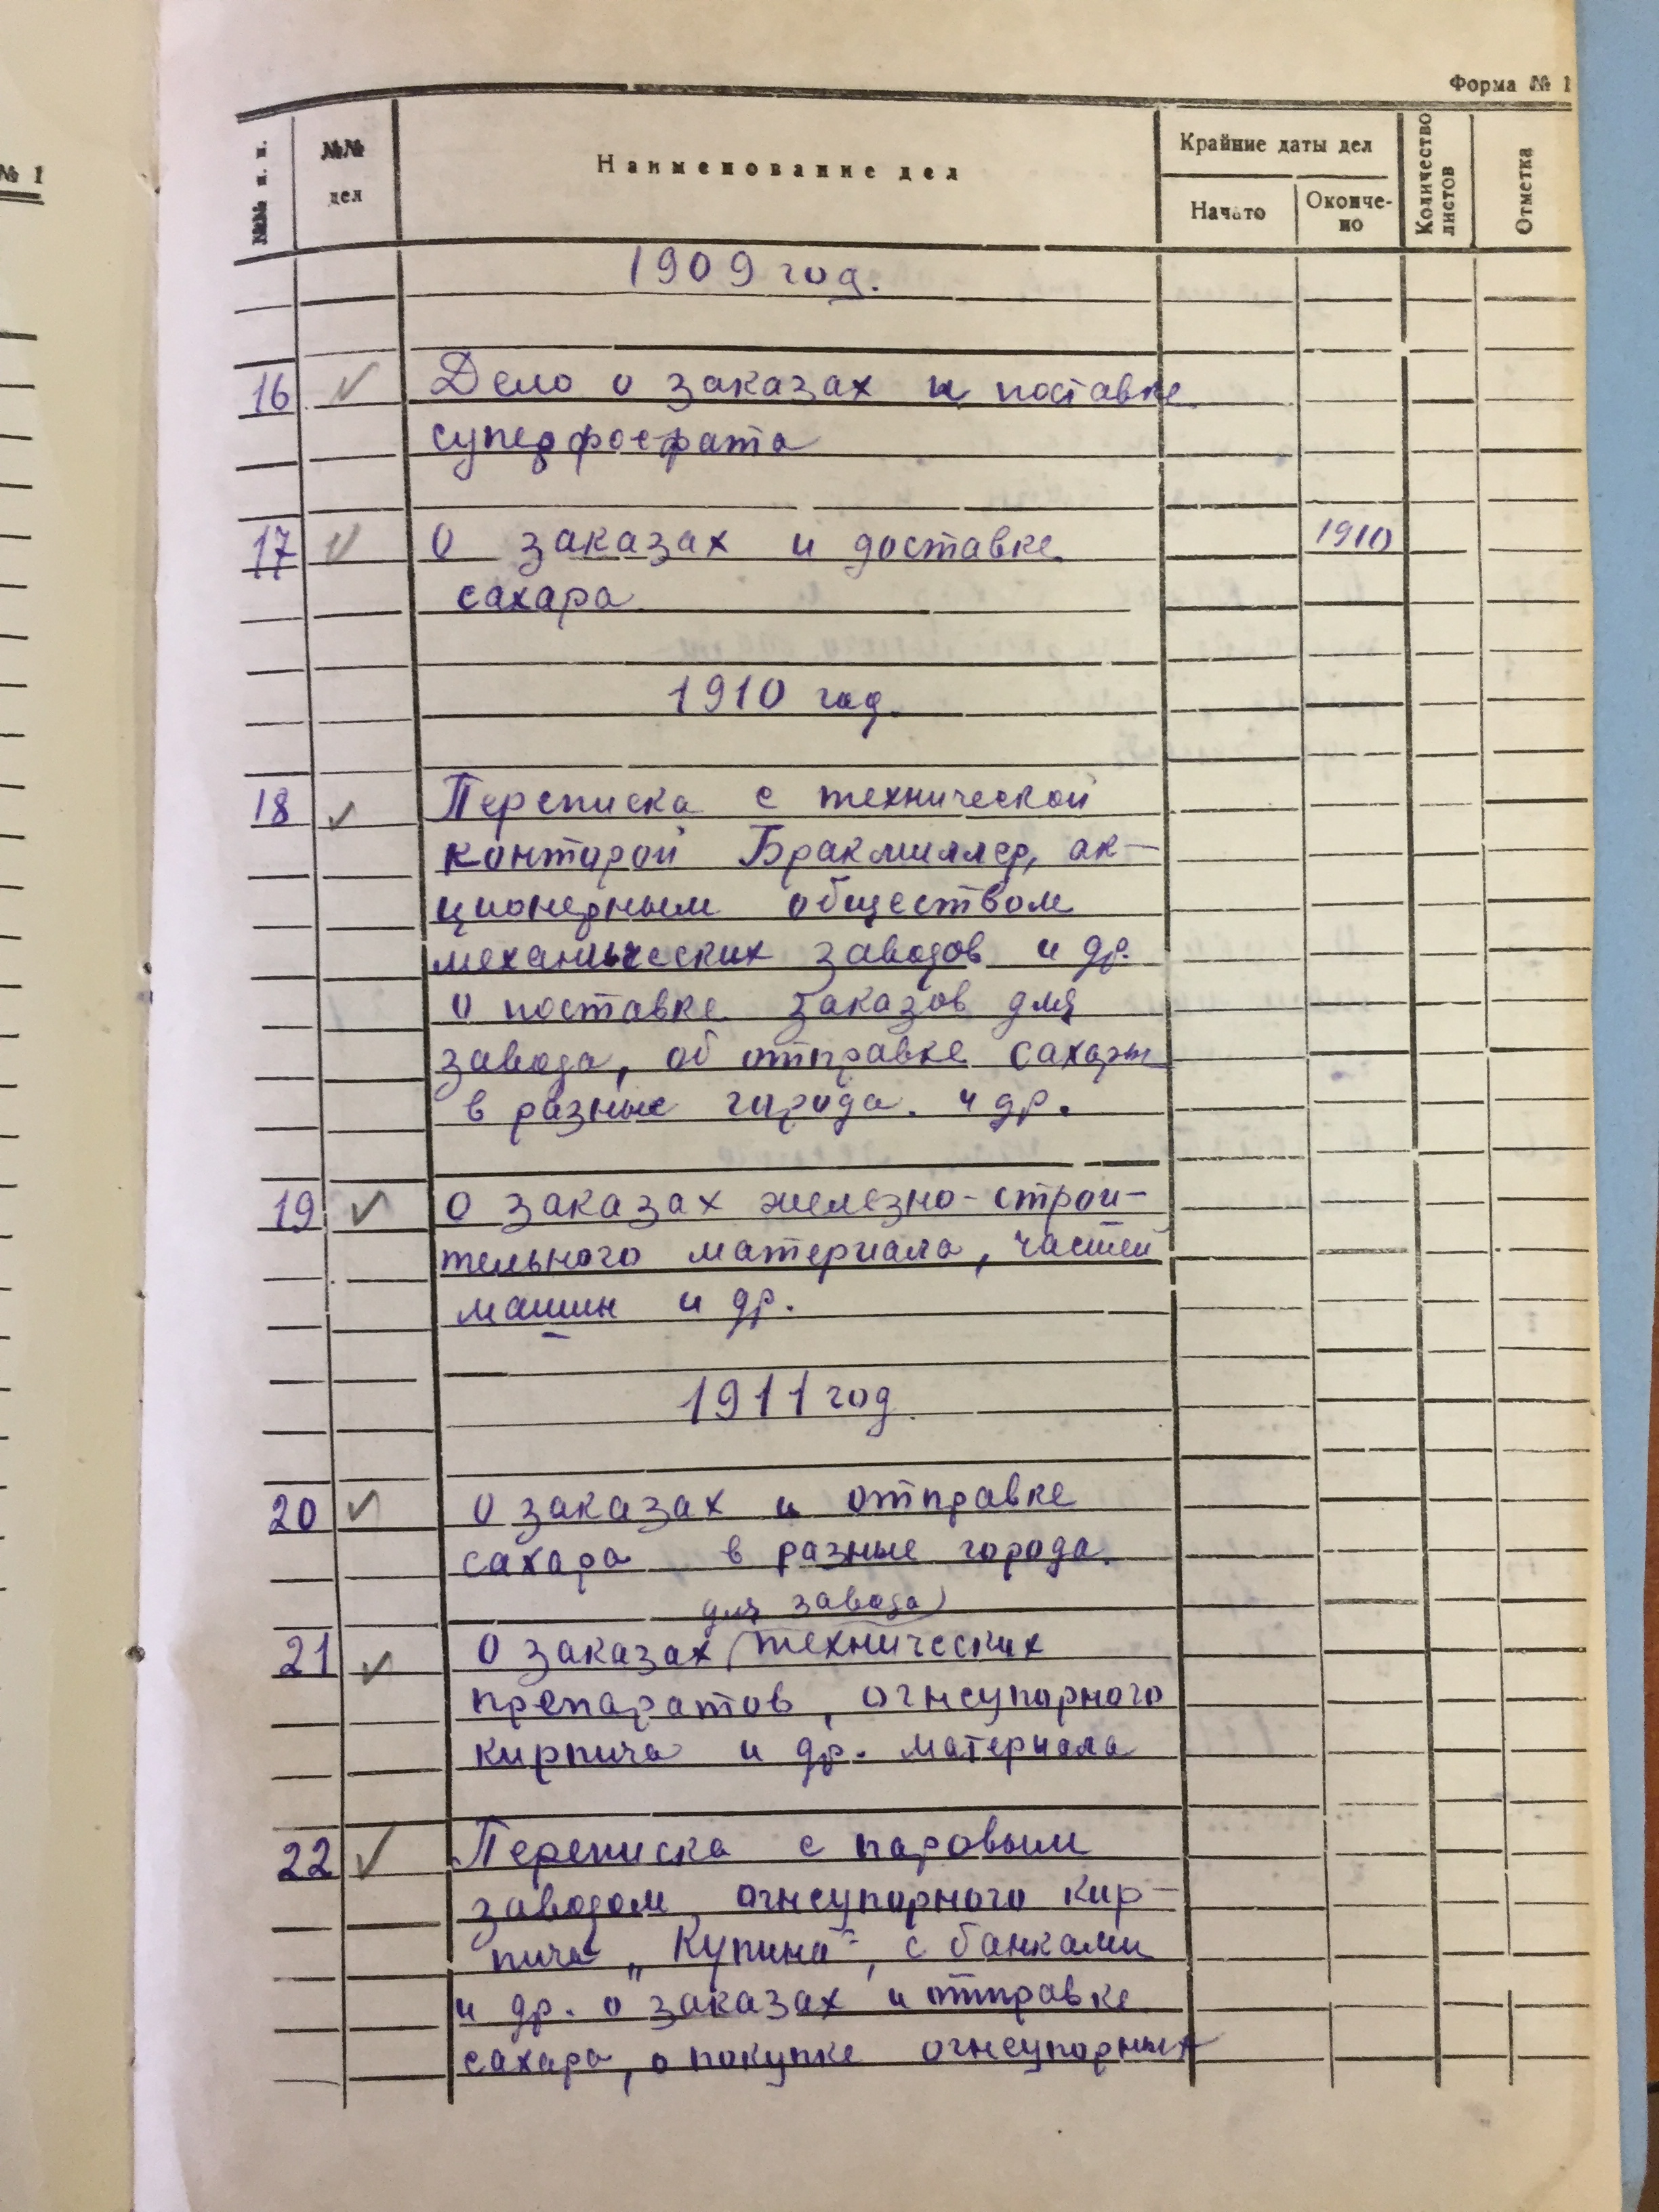 Форма № 1
№ 1
№№ п. п.
№№ дел
Наименование дел
Крайние даты дел
Начато
Окончено-
но
Количество листов
Отметка
1909 год.
16 Дело о заказах и поставке
суперфосфата
17 О заказах и доставке 1910
сахара
1910 год.
18 Переписка с технической
конторой Бракмиллер, ак-
ционерным обществом
механических заводов и др.
о поставке заказов для
завода, об отправке сахара
в разные города и др.
19 О заказах железно-строи-
тельного материала, частей
машин и др.
1911 год
20 О заказах и отправке
сахара в разные города.
для завода
21 О заказах технических
препаратов, огнеупорного
кирпича и др. материала
22 Переписка с паровым
заводом огнеупорного кир-
пича „Купина", с банками
и др. о заказах и отправке
сахара, о покупке огнеупорных